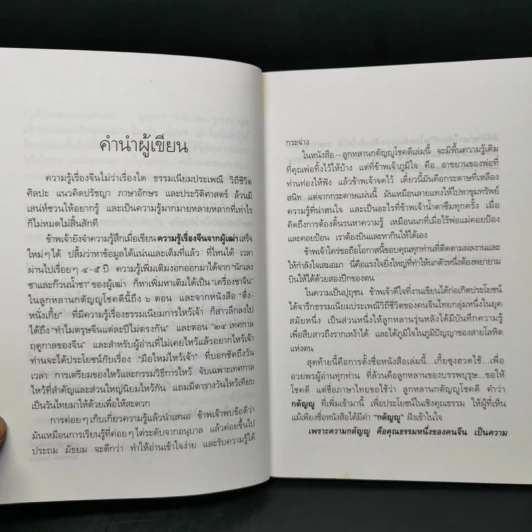 คำนำผู้เขียน
ความรู้เรื่องจีนไม่ว่าเรื่องใด ธรรมเนียมประเพณี วิถีชีวิต
ศิลปะ แนวคิดปรัชญา ภาษาอักษร และประวัติศาสตร์ ล้วนมี
เสน่ห์ชวนให้อยากรู้ และเป็นความรู้มากมายหลายหลากที่เท่าไร
ก็ไม่หมดไม่สิ้นสักที
ข้าพเจ้ายังจำความรู้สึกเมื่อเขียนความรู้เรื่องจีนจากผู้เฒ่าเสร็จ
ใหม่ๆ ได้ ปลื้มว่าหาข้อมูลได้แน่นและเต็มที่แล้ว ที่ไหนได้ เวลา
ผ่านไปเรื่อยๆ ๔-๕ ปี ความรู้เพิ่มเติมงอกออกมาได้จาก "นักเลง
ชาและก๊วนน้ำชา" ของผู้เฒ่า ก็หาเพิ่มเติมได้เป็น "เครื่องชาจีน"
ในลูกหลานกตัญญูโชคดีนี้ถึง ๖ ตอน และจากหนังสือ "ตึ่ง-
หนั่งเกี้ย" ที่มีความรู้เรื่องธรรมเนียมการไหว้เจ้า ก็สาวลึกลงไป
ได้ถึง "ทำไมตรุษจีนแต่ละปีไม่ตรงกัน" และตอน "๒๔ เทศกาล
ฤดูกาลของจีน" และสำหรับผู้อ่านที่ไม่เคยไหว้แล้วอยากไหว้เจ้า
ท่านจะได้ประโยชน์กับเรื่อง "มือใหม่ไหว้เจ้า" ที่บอกชัดถึงวัน
เวลา การเตรียมของไหว้และกรรมวิธีการไหว้ จับเฉพาะเทศกาล
ไหว้ที่สำคัญและส่วนใหญ่นิยมไหว้กัน แถมมีตารางวันไหว้เทียบ
เป็นวันไทยมาให้ด้วยเพื่อให้สะดวก
การค่อยๆ เก็บเกี่ยวความรู้แล้วนำเสนอ ข้าพเจ้าพบข้อดีว่า
มันเหมือนการเรียนรู้ที่ค่อยๆ ไต่ระดับจากอนุบาล แล้วค่อยขึ้นไป
ประถม มัธยม จะดีกว่า ทำให้อ่านเข้าใจง่าย และรับความรู้ได้
กระจ่าง
ในหนังสือ-ลูกหลานกตัญญูโชคดีเล่มนี้ จะมีพื้นความรู้เดิม
ที่คุณพ่อทิ้งไว้ให้บ้าง แต่ที่ข้าพเจ้าภูมิใจ คือ อาขยานของพ่อที่
ท่านท่องให้ฟัง แล้วข้าพเจ้าจดไว้ เดี๋ยวนี้มันคือกระดาษที่เหลือง
สนิท แต่จากกระดาษแผ่นนี้ มันเหมือนลายแทงให้ไปหาขุมทรัพย์
ความรู้ที่น่าสนใจ และเป็นอะไรที่ข้าพเจ้าน้ำตาซึมทุกครั้ง เมื่อ
คิดถึงการต้องดิ้นรนหาความรู้ เหมือนนกที่เมื่อไร้พ่อแม่คอยป้อง
และคอยป้อน เราต้องบินและหากินให้ได้เอง
ข้าพเจ้าใคร่ขอถือโอกาสนี้ขอบคุณทุกท่านที่ติดตามผลงานและ
ให้กำลังใจเสมอมา นี่คือแรงใจยิ่งใหญ่ที่ทำให้นกตัวหนึ่งต้องพยายาม
บินให้ได้ด้วยสองปีกของตน
ในความเป็นปุถุชน ข้าพเจ้าดีใจที่งานเขียนได้ก่อเกิดประโยชน์
ได้จารึกธรรมเนียมประเพณีวิถีชีวิตของคนจีนไทยกลุ่มหนึ่งในยุค
สมัยหนึ่ง เป็นส่วนหนึ่งให้ลูกหลานรุ่นหลังได้มีบันทึกความรู้
เพื่อสืบสาวถึงรากเหง้าได้ และได้ภูมิใจในภูมิปัญญาของสายโลหิต
แห่งตน
สุดท้ายนี้คือการตั้งชื่อหนังสือเล่มนี้...เกี้ยซุงฮวดใช้...เพื่อ
อวยพรผู้อ่านทุกท่าน ที่ล้วนคือลูกหลานของบรรพบุรุษ...ขอให้
โชคดี แต่ชื่อภาษาไทยขอใช้ว่า ลูกหลานกตัญญูโชคดี คำว่า
กตัญญู ที่เพิ่มเข้ามานี้ เพื่อประโยชน์ในเชิงคุณธรรม ให้ผู้ที่เห็น
แม้เพียงชื่อหนังสือได้มีคำ "กตัญญู" ฝังเข้าในใจ
เพราะความกตัญญู คือคุณธรรมหนึ่งของคนจีน เป็นความ